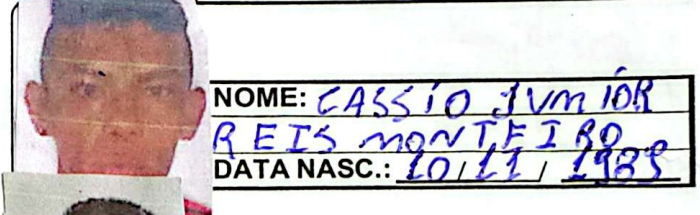 NOME: CASSIO JUNIOR
REIS MONTEIRO
DATA NASC.: 10/11/1989